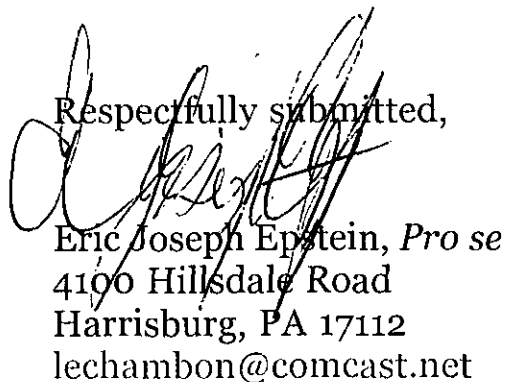 Respectfully submitted,
Eric Joseph Epstein, Pro se
4100 Hillsdale Road
Harrisburg, PA 17112
lechambon@comcast.net